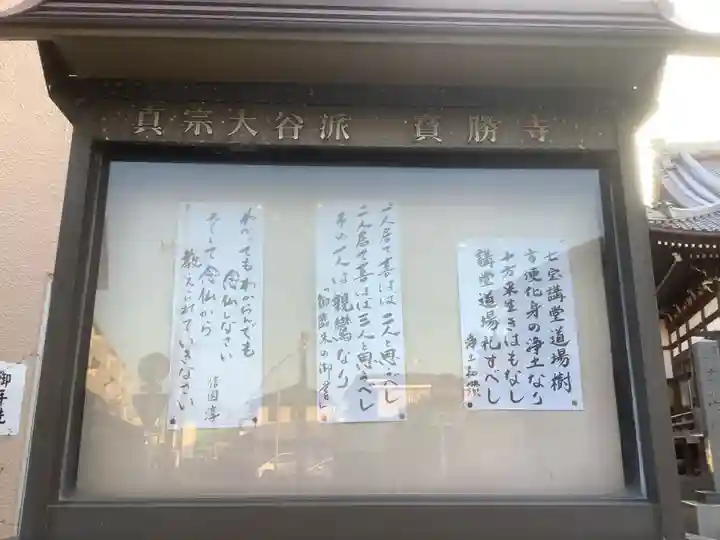 真宗大谷派　寳勝寺
七宝講堂道場樹
方便化身の浄土なり
十方来生きはもなし
講堂道場礼すべし
浄土和讃
一人居て喜ばは二人と思べし
二人居て喜ばは三人と思べし
その一人は親鸞なり
「御臨末の御書」
わかってもわからんでも
念仏しなさい
そして念仏から
教えられていきなさい
信国淳